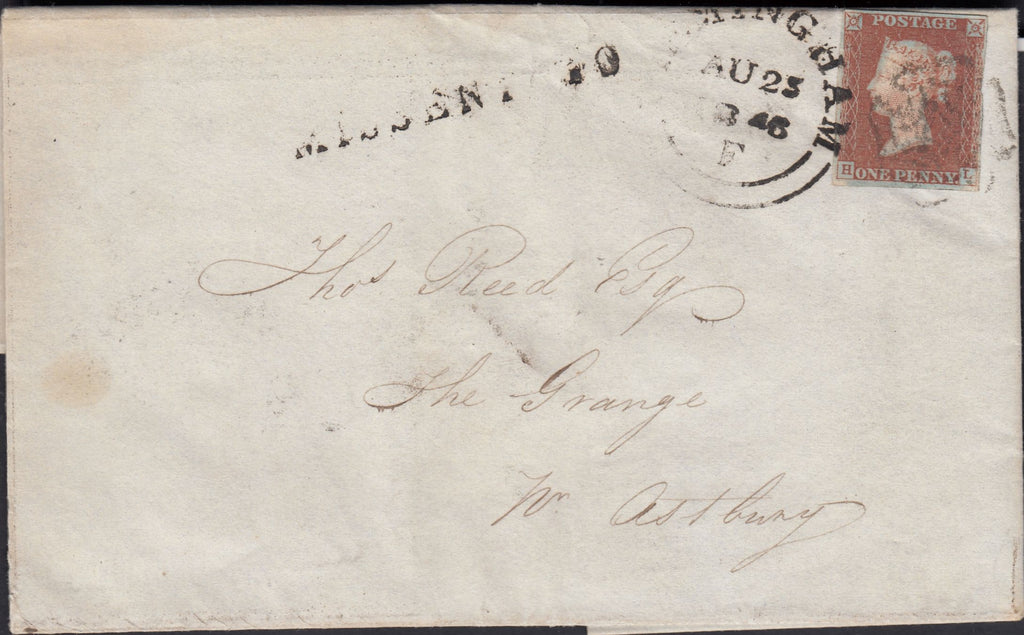 MISSENT TO
INGHAM
AU 23
1846
F
POSTAGE
H ONE PENNY L
Thos Reed Esq
The Grange
Nr Astbury